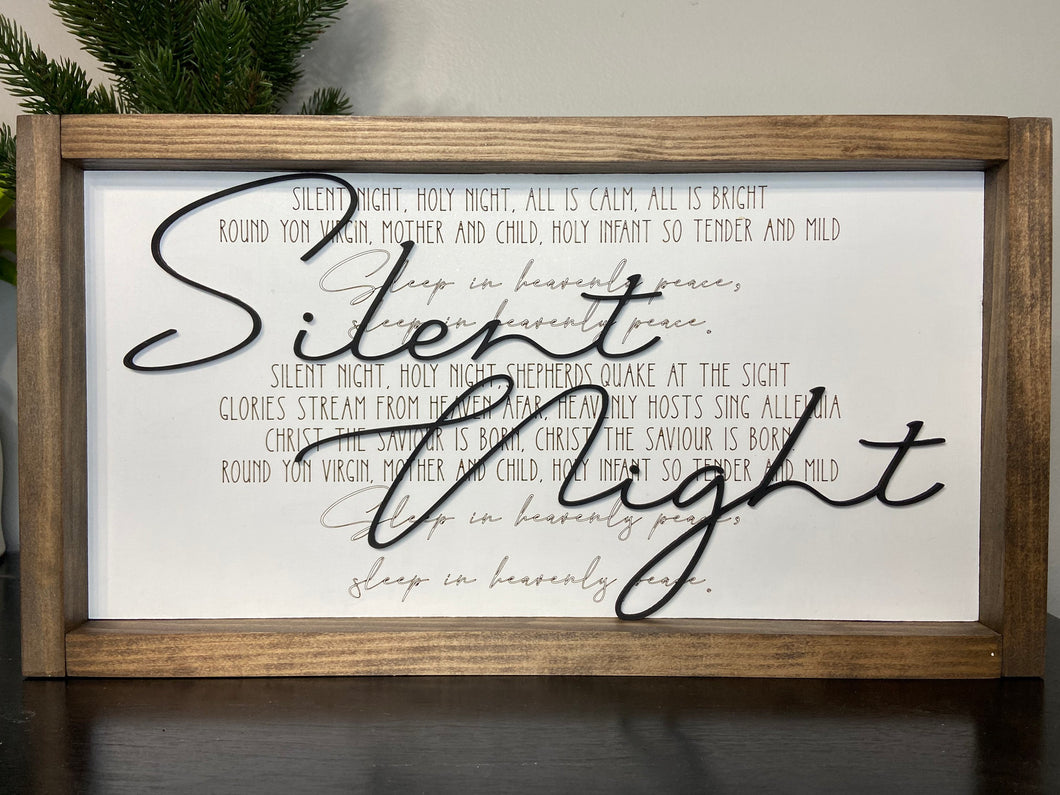 SILENT NIGHT, HOLY NIGHT, ALL IS CALM, ALL IS BRIGHT
ROUND YON VIRGIN, MOTHER AND CHILD, HOLY INFANT SO TENDER AND MILD
Sleep in heavenly peace,
sleep in heavenly peace.
Silent
SILENT NIGHT, HOLY NIGHT, SHEPHERDS QUAKE AT THE SIGHT
GLORIES STREAM FROM HEAVEN AFAR, HEAVENLY HOSTS SING ALLELUIA
CHRIST THE SAVIOUR IS BORN, CHRIST THE SAVIOUR IS BORN.
Night
ROUND YON VIRGIN, MOTHER AND CHILD, HOLY INFANT SO TENDER AND MILD
Sleep in heavenly peace,
sleep in heavenly peace.